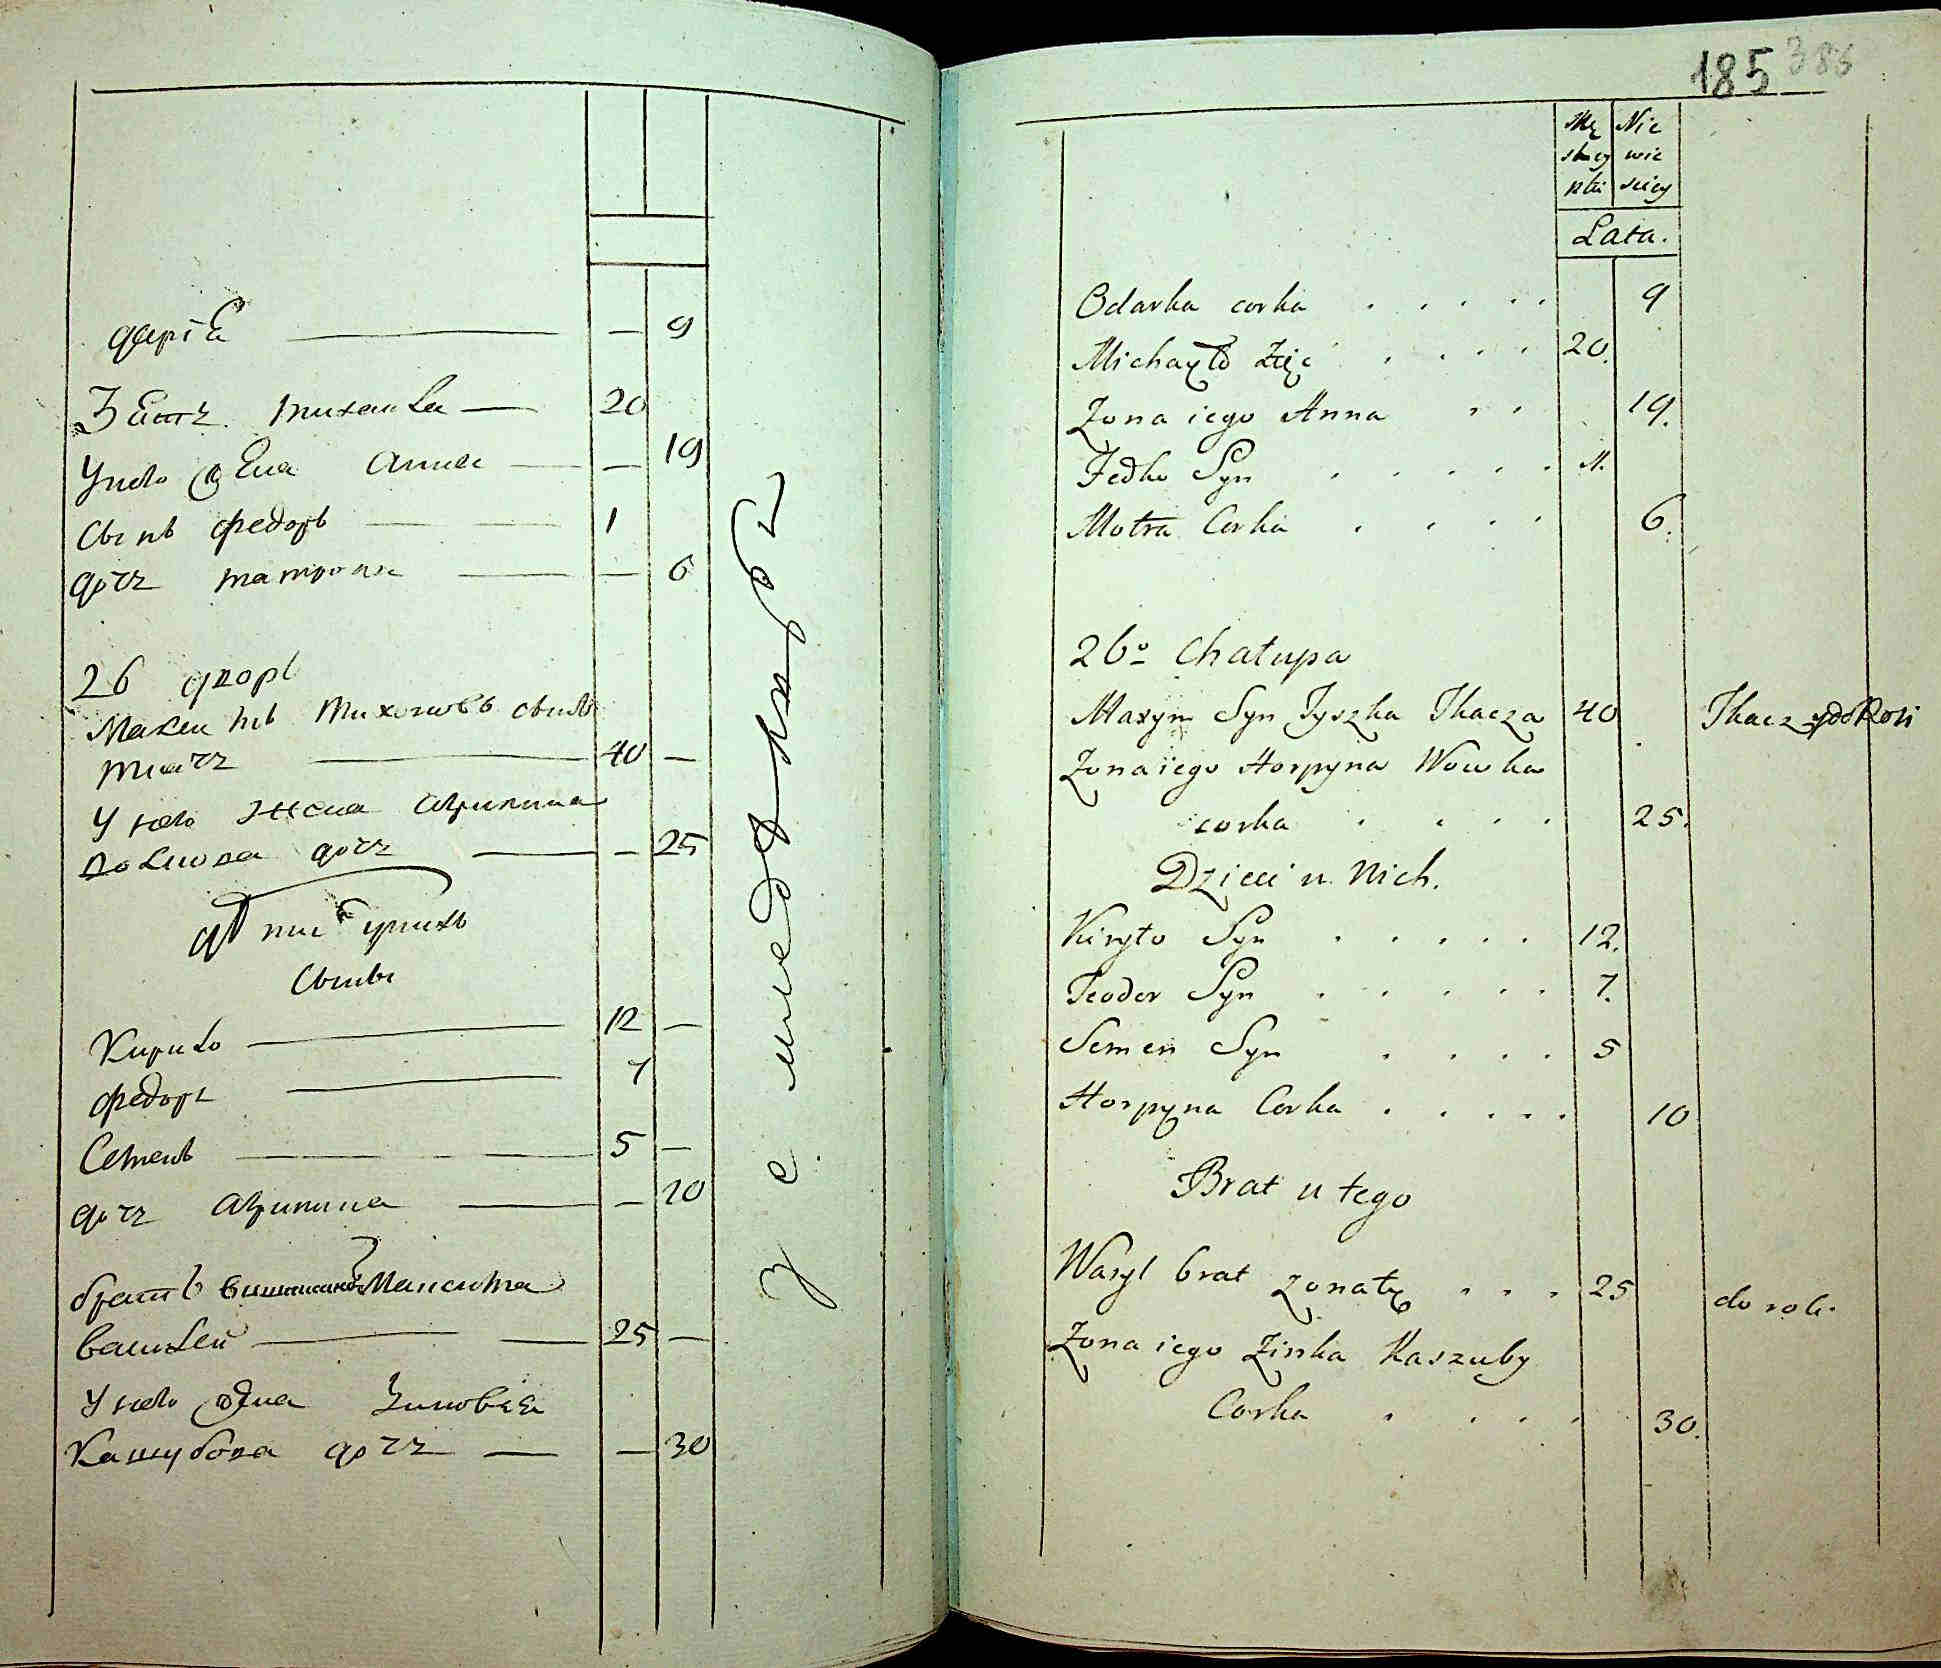 дарiа — — 9
Зять михаила — 20
У нево жена Анна — — 19
Сынъ Федоръ — 1
дочь матрона — — 6
26 дворъ
Максимъ Тихоновъ сынъ
ткачь — 40 —
У нево жена Агрипина
Вовкова дочь — — 25
дѣти у нихъ
Сыны
Кирило — 12 —
Федоръ — 7
Семенъ — 5 —
дочь Агрипина — — 10
братъ Максима
василей — 25 —
У нево жена Зиновия
Кашубова дочь — — 30
185 386
Mę Nie
skiey wie
płci sciey
Lata.
Odarka corka . . . . . 9
Michayło Zięć . . . . 20.
Zona iego Anna . . 19.
Fedko Syn . . . . . 1.
Motra Corka . . . . 6.
26º Chałupa
Maxym Syn Tyszka Tkacza 40 Tkacz
Zona iego Horpyna Wowka
corka . . . . 25.
Dzieci u Nich.
Kiryło Syn . . . . . 12.
Teodor Syn . . . . . 7.
Semen Syn . . . . 5
Horpyna Corka . . . . . 10
Brat u tego
Wasyl brat zonaty . . . 25 do roli.
Zona iego Zinka Kaszuby
Corka . . . . 30.